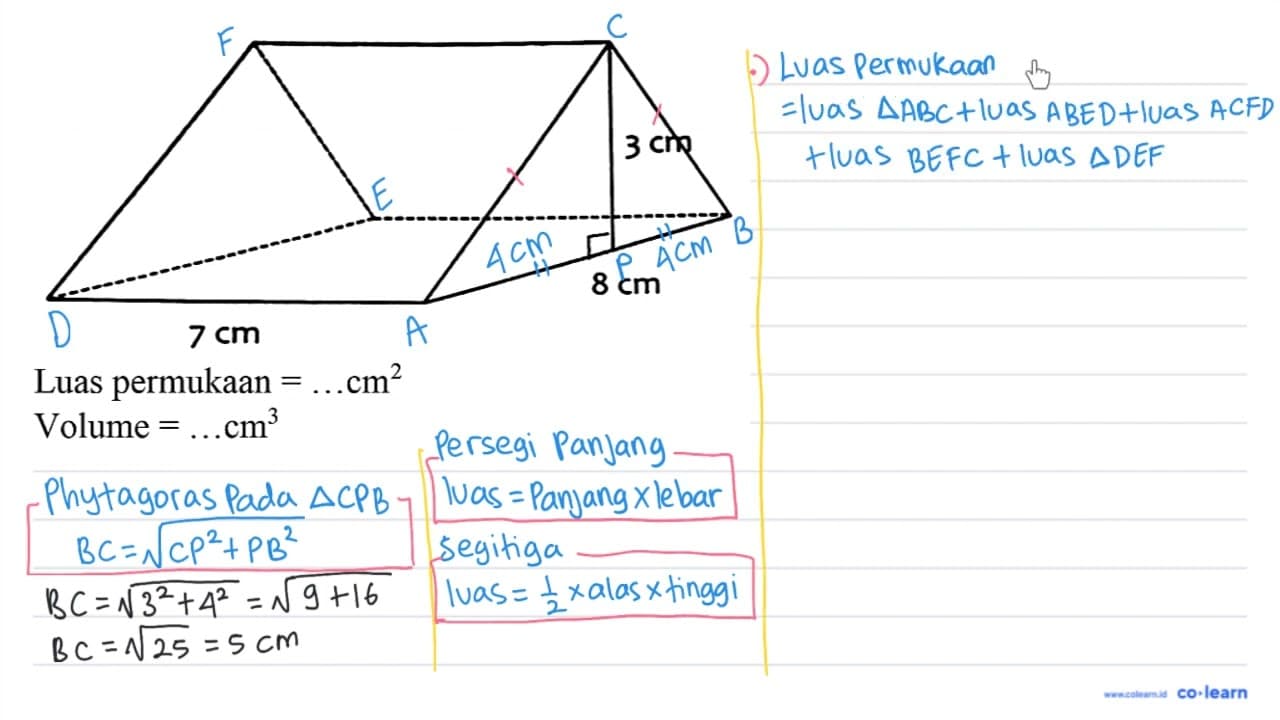 F
C
3 cm
E
B
4 cm
P
4 cm
8 cm
D
A
7 cm
Luas permukaan = ...cm²
Volume = ...cm³
Phytagoras Pada △CPB
BC = √CP² + PB²
BC = √3² + 4² = √9 + 16
BC = √25 = 5 cm
Persegi Panjang
luas = Panjang x lebar
Segitiga
luas = 1/2 x alas x tinggi
•) Luas Permukaan
= luas △ABC + luas ABED + luas ACFD
+ luas BEFC + luas △DEF
www.colearn.id co•learn